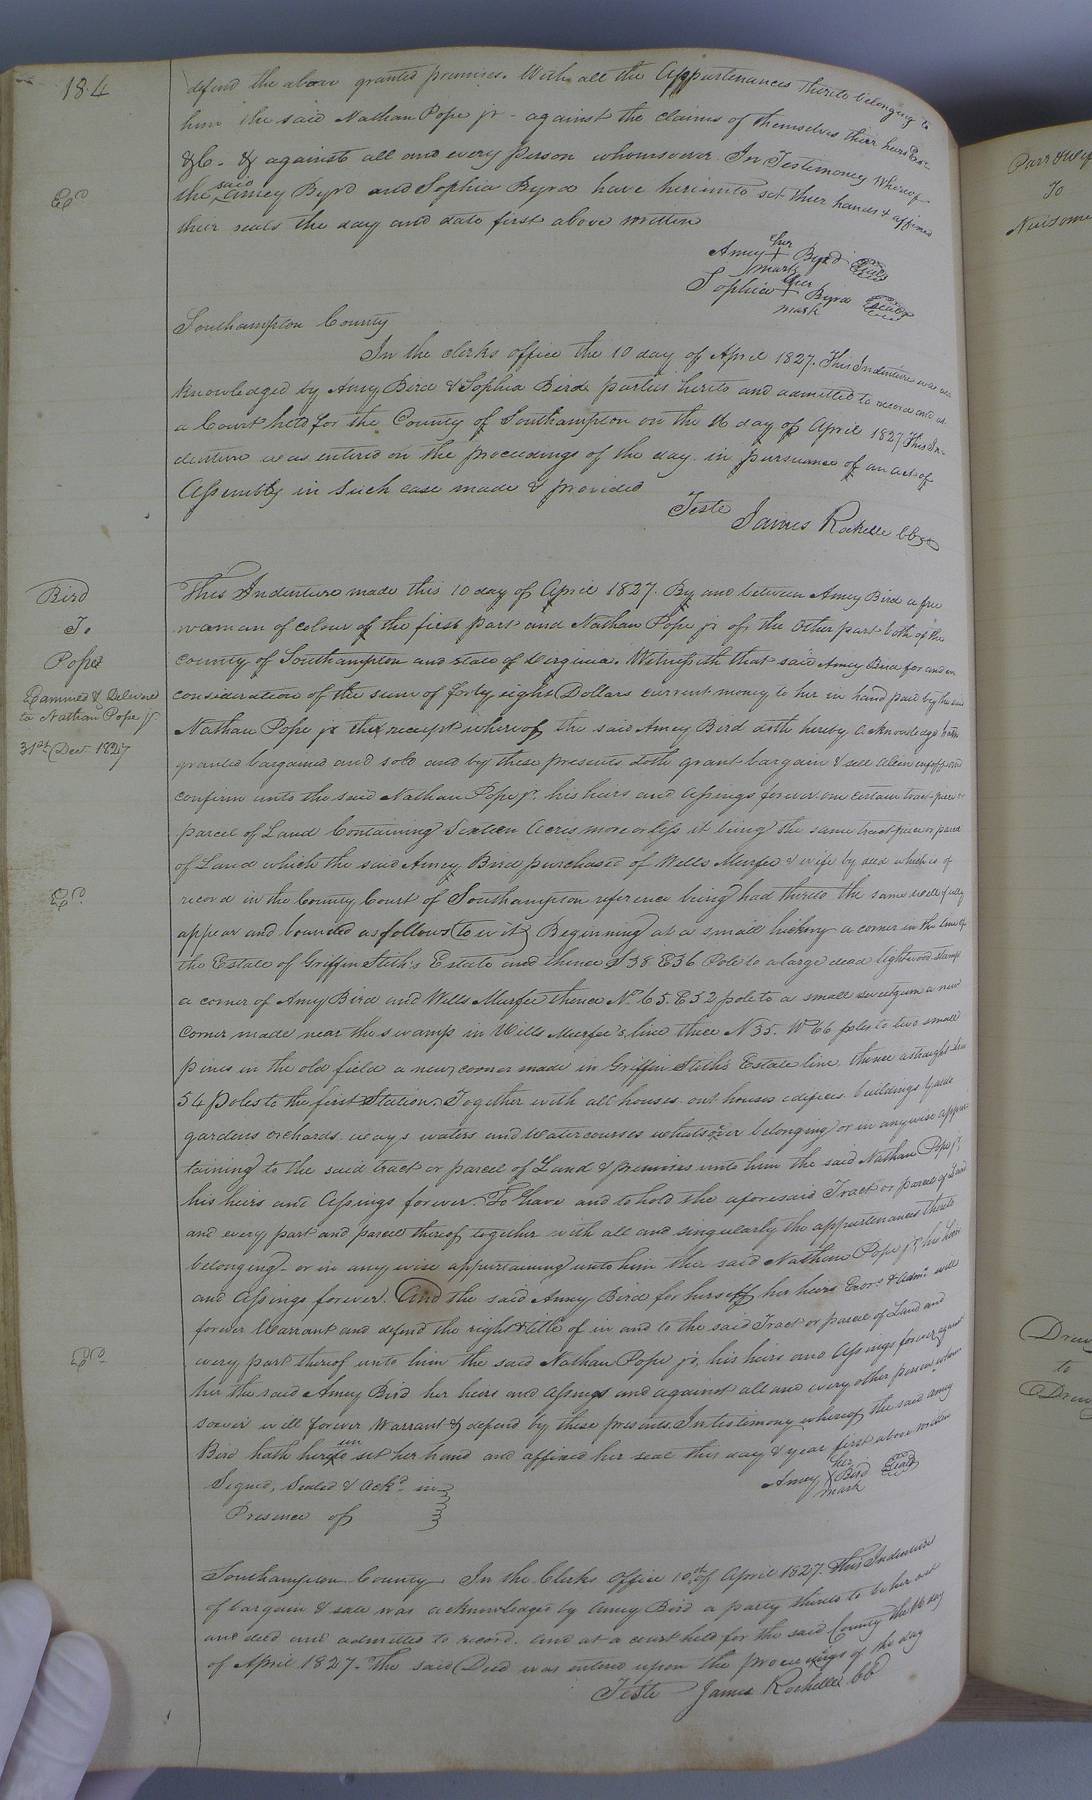 184
defend the above granted premises. With all the Appurtenances thereto belonging to
him the said Nathan Pope jr - against the claims of themselves their heirs Exr
&C. & against all and every person whomsoever. In Testimony Whereof
the said Amey Byrd and Sophia Byrd have hereunto set their hands & affixed
their seals the day and date first above written
her
Amey + Byrd Seal
mark
her
Sophia + Byrd Seal
mark
Southampton County
In the clerks office the 10 day of April 1827. This Indenture was ac
knowledged by Amy Bird & Sophia Bird parties hereto and admitted to record and at
a Court held for the County of Southampton on the 16 day of April 1827 This In-
denture was entered on the proceedings of the day in pursuance of an act of
Assembly in such case made & provided
Teste James Rochelle CC
Bird
To
Pope
Examined & Delivered
to Nathan Pope jr
31st Decr 1827
This Indenture made this 10 day of April 1827. By and between Amey Bird a free
woman of colour of the first part and Nathan Pope jr of the Other part both of the
county of Southampton and state of Virginia. Witnesseth that said Amey Bird for and in
consideration of the sum of forty eight Dollars current money to her in hand paid by the said
Nathan Pope jr the receipt whereof the said Amey Bird doth hereby acknowledge hath
granted bargained and sold and by these presents doth grant bargain & sell alien enfeoff and
confirm unto the said Nathan Pope jr. his heirs and Assings forever one certain tract piece or
parcel of Land Containing Sixteen Acres more or less it being the same tract piece or parcel
of Land which the said Amey Bird purchased of Wells Murfee & wife by deed which is of
record in the County Court of Southampton reference being had thereto the same will fully
appear and bounded as follows (to wit) Beginning at a small hickory a corner in the line of
the Estate of Griffin Stith's Estate and thence S 38 E 36 Pole to a large dead lightwood stump
a corner of Amy Bird and Wells Murfee thence No. 65. E 52 pole to a small sweetgum a new
corner made near the swamp in Wills Murfee's line thence N 35. W 66 poles to two small
pines in the old field a new corner made in Griffin Stith's Estate line, thence a straight line
54 poles to the first Station. Together with all houses. out houses edifices. buildings yards
gardens orchards. ways waters and Watercourses whatsoever belonging or in anywise apper
taining to the said tract or parcel of Land & premises unto him the said Nathan Pope jr.
his heirs and Assings forever. To have and to hold the aforesaid Tract or parcel of Land
and every part and parcel thereof together with all and singularly the appurtenances thereto
belonging or in any wise appurtaining unto him the said Nathan Pope jr, his heirs
and Assings forever. And the said Amey Bird for herself her heirs Exors & Admr will
forever Warrant and defend the right & title of in and to the said Tract or parcel of Land and
every part thereof unto him the said Nathan Pope jr, his heirs and Assings forever against
her the said Amey Bird her heirs and Assings and against all and every other person whom
soever will forever Warrant & defend by these presents. In testimony whereof the said Amey
Bird hath hereunto set her hand and affixed her seal this day & year first above written
Signed, Sealed & Ackd. in
Presence of
her
Amey X Bird Seal
mark
Southampton County In the Clerks Office 10th of April 1827. This Indenture
of bargain & sale was acknowledged by Amey Bird a party thereto to be her act
and deed and admitted to record. And at a court held for the said County the 16 day
of April 1827. The said Deed was entered upon the proceedings of the day
Teste James Rochelle CC
Parr & Wife
To
Drew
to
Drew